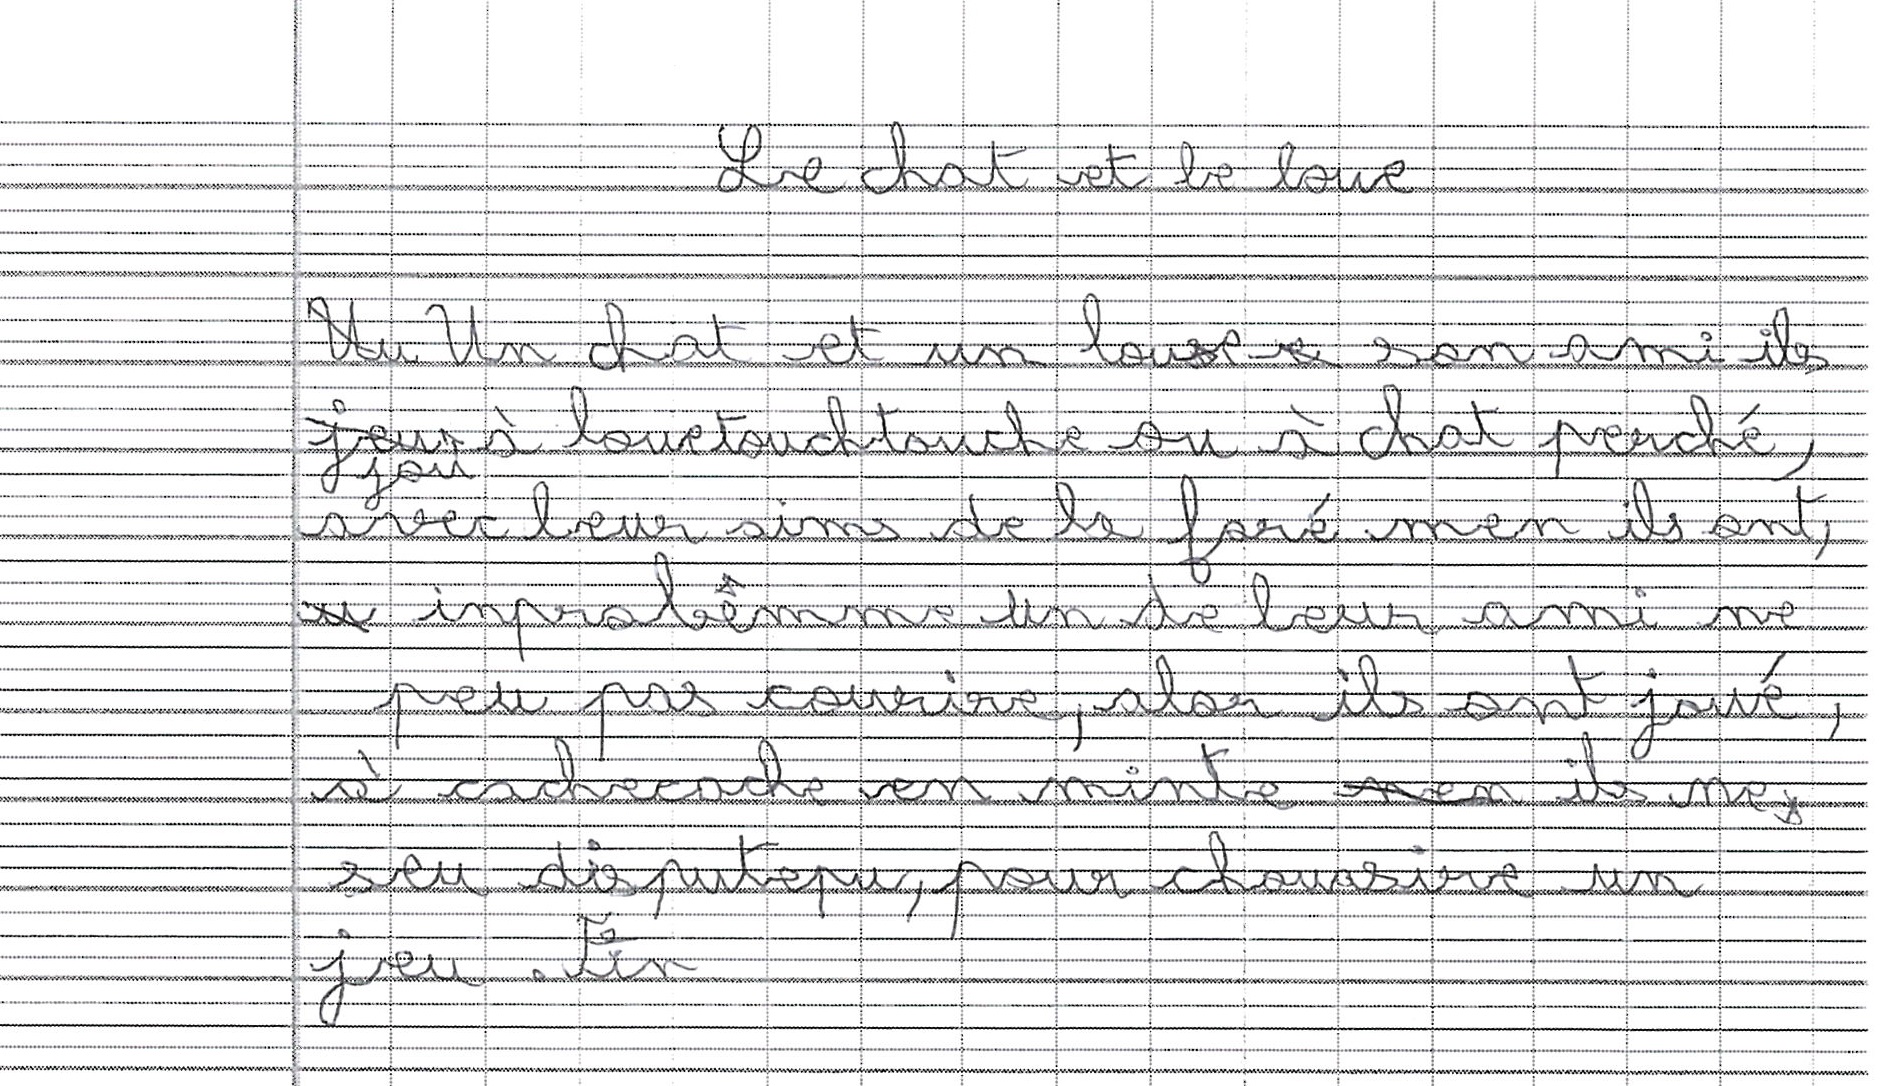 Le chat et le loue
Un Un chat et un loue son ami ils
jeur à louetouchtouche ou à chat perché,
joui
avec leur aims de la foré men ils ont,
inproblêmme un de leur ami ne
peu pas courire, alor ils ont joué,
à cachecache en minte men ils ne
seu disputepu, pour chouasire un
jeu . Fin